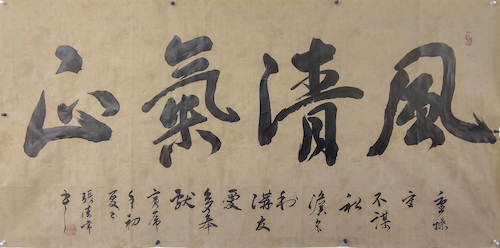 風清氣正
重操
守
不謀
私
淡名
利
講友
愛
多奉
獻
年初
夏
書